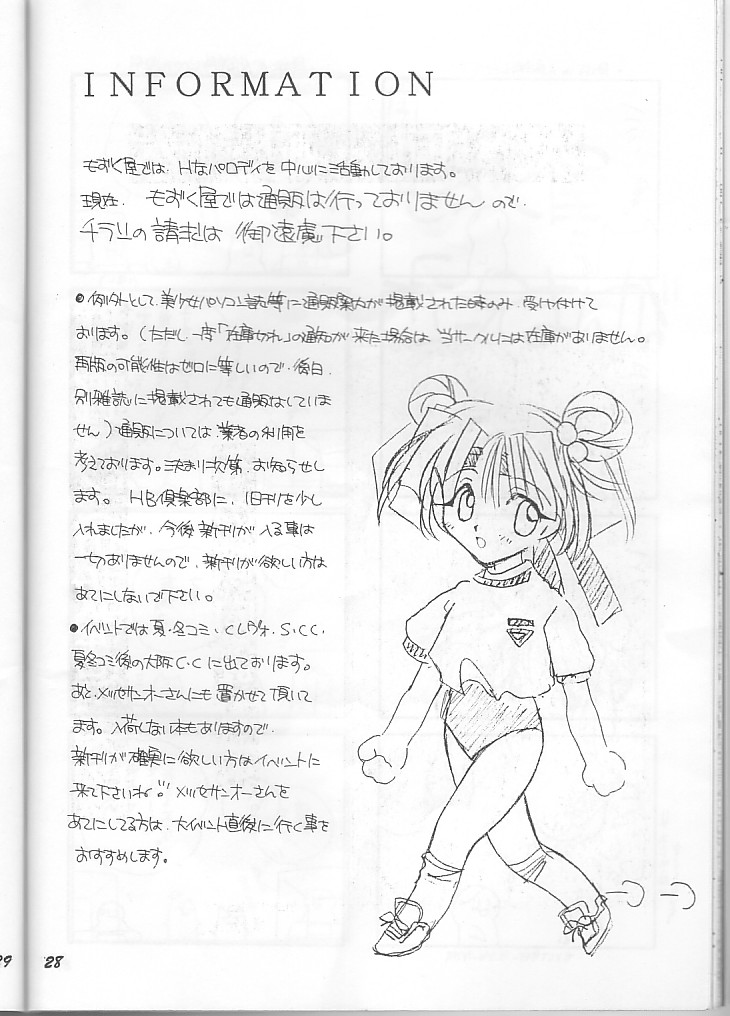 INFORMATION
もずく屋では、Hなパロディを中心に活動しております。
現在、もずく屋では通販は行っておりませんので、
チラシの請求は御遠慮下さい。
●例外として、美少女パソコン誌等に通販案内が掲載された時のみ、受け付けて
おります。(ただし、一度「在庫切れ」の通知が来た場合は、当サークルには在庫がありません。
再版の可能性はゼロに等しいので、後日、
別雑誌に掲載されても通販はしていま
せん)通販については、業者の利用を
考えております。決まり次第、お知らせし
ます。HB倶楽部に、旧刊を少し
入れましたが、今後新刊が入る事は
一切ありませんので、新刊が欲しい方は
あてにしないで下さい。
●イベントでは夏・冬コミ、CレヴォS.CC、
夏冬コミ後の大阪C.Cに出ております。
あと、メッセサンオーさんにも置かせて頂いて
ます。入荷しない本もありますので、
新刊が確実に欲しい方はイベントに
来て下さいね!! メッセサンオーさんを
あてにしてる方は、大イベント直後に行く事を
おすすめします。
29
28